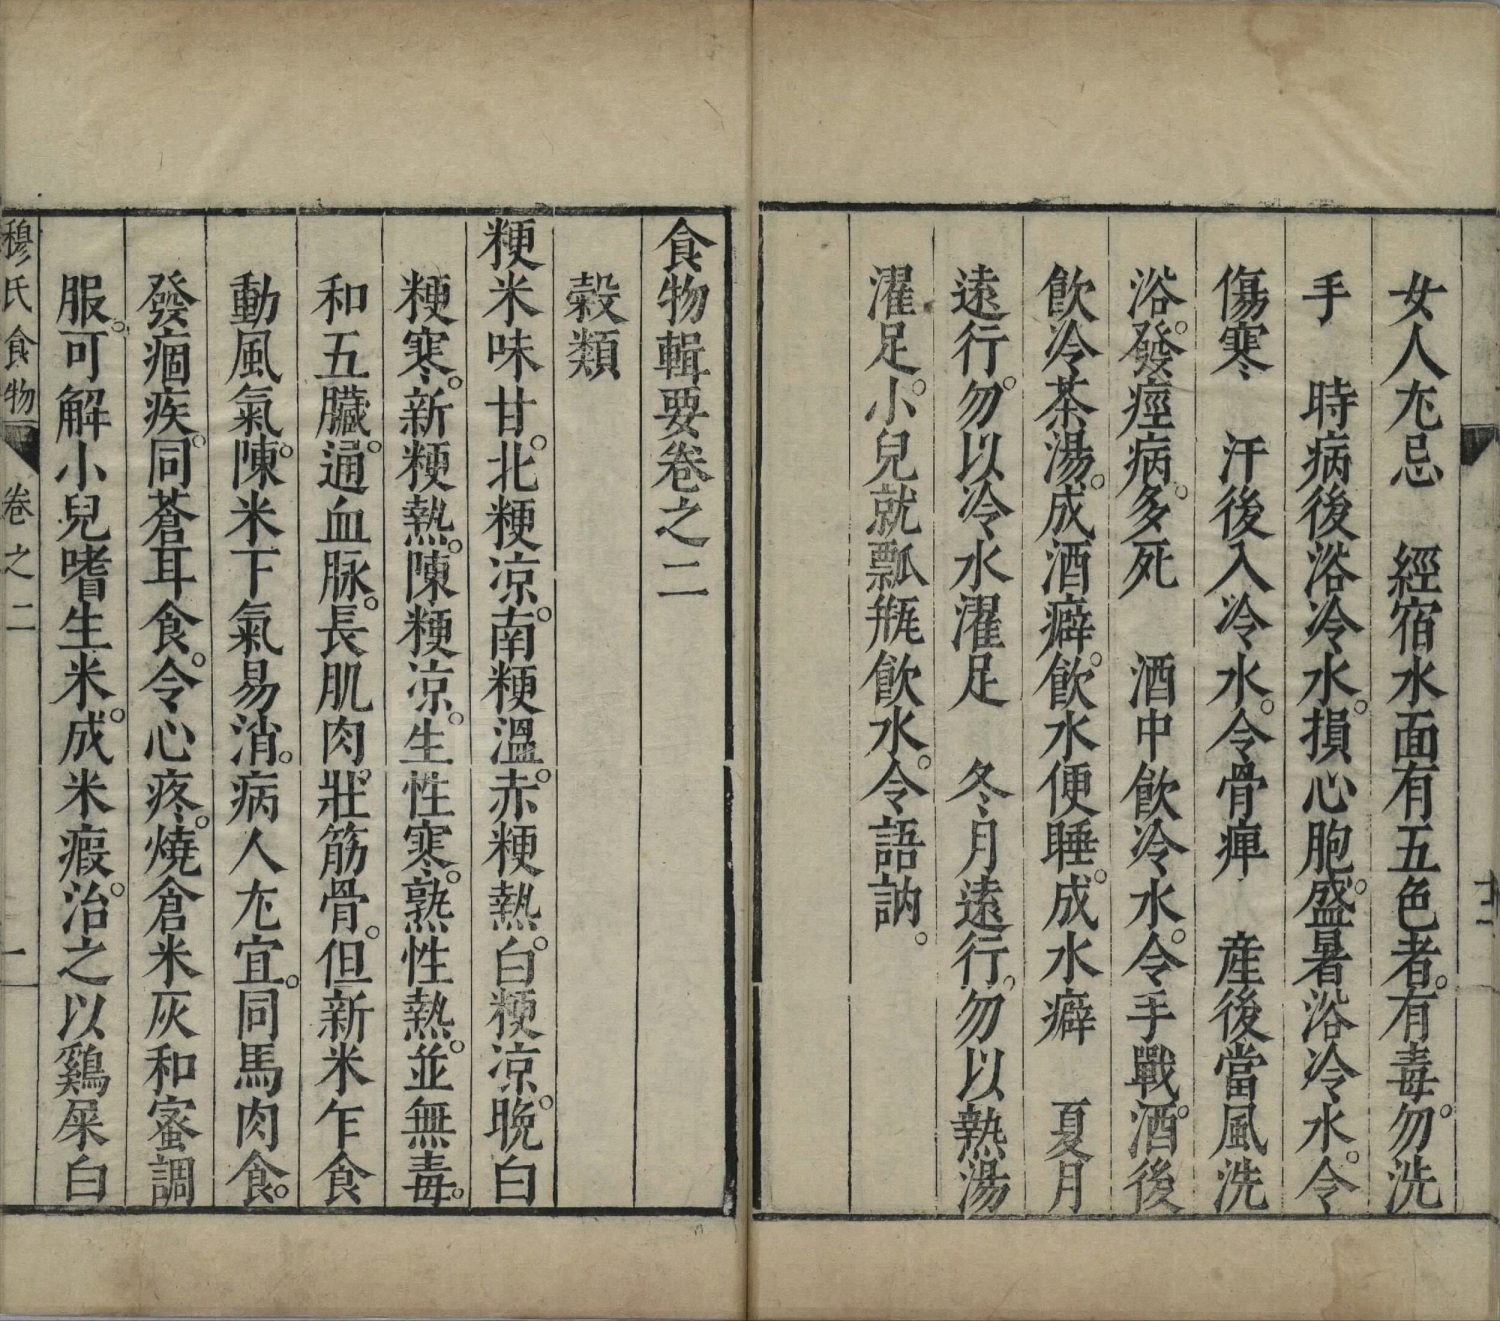 女人尢忌　經宿水面有五色者。有毒。勿洗
手　時病後浴冷水。損心胞。盛暑浴冷水。令
傷寒　汗後入冷水。令骨痺　産後當風洗
浴。發痙病。多死　酒中飮冷水。令手戰。酒後
飮冷茶湯。成酒癖。飮水便睡。成水癖　夏月
遠行。勿以冷水濯足　冬月遠行。勿以熱湯
濯足。小兒就瓢瓶飮水。令語訥。
十二
食物輯要卷之二
穀類
粳米味甘。北粳凉。南粳溫。赤粳熱。白粳凉。晚白
粳寒。新粳熱。陳粳凉。生性寒。熟性熱。並無毒。
和五臟。通血脉。長肌肉。壯筋骨。但新米乍食
動風氣。陳米下氣易消。病人尢宜。同馬肉食。
發痼疾。同蒼耳食。令心疼。燒倉米灰和蜜調
服。可解小兒嗜生米。成米瘕。治之以鷄屎白
穆氏食物　卷之二　一